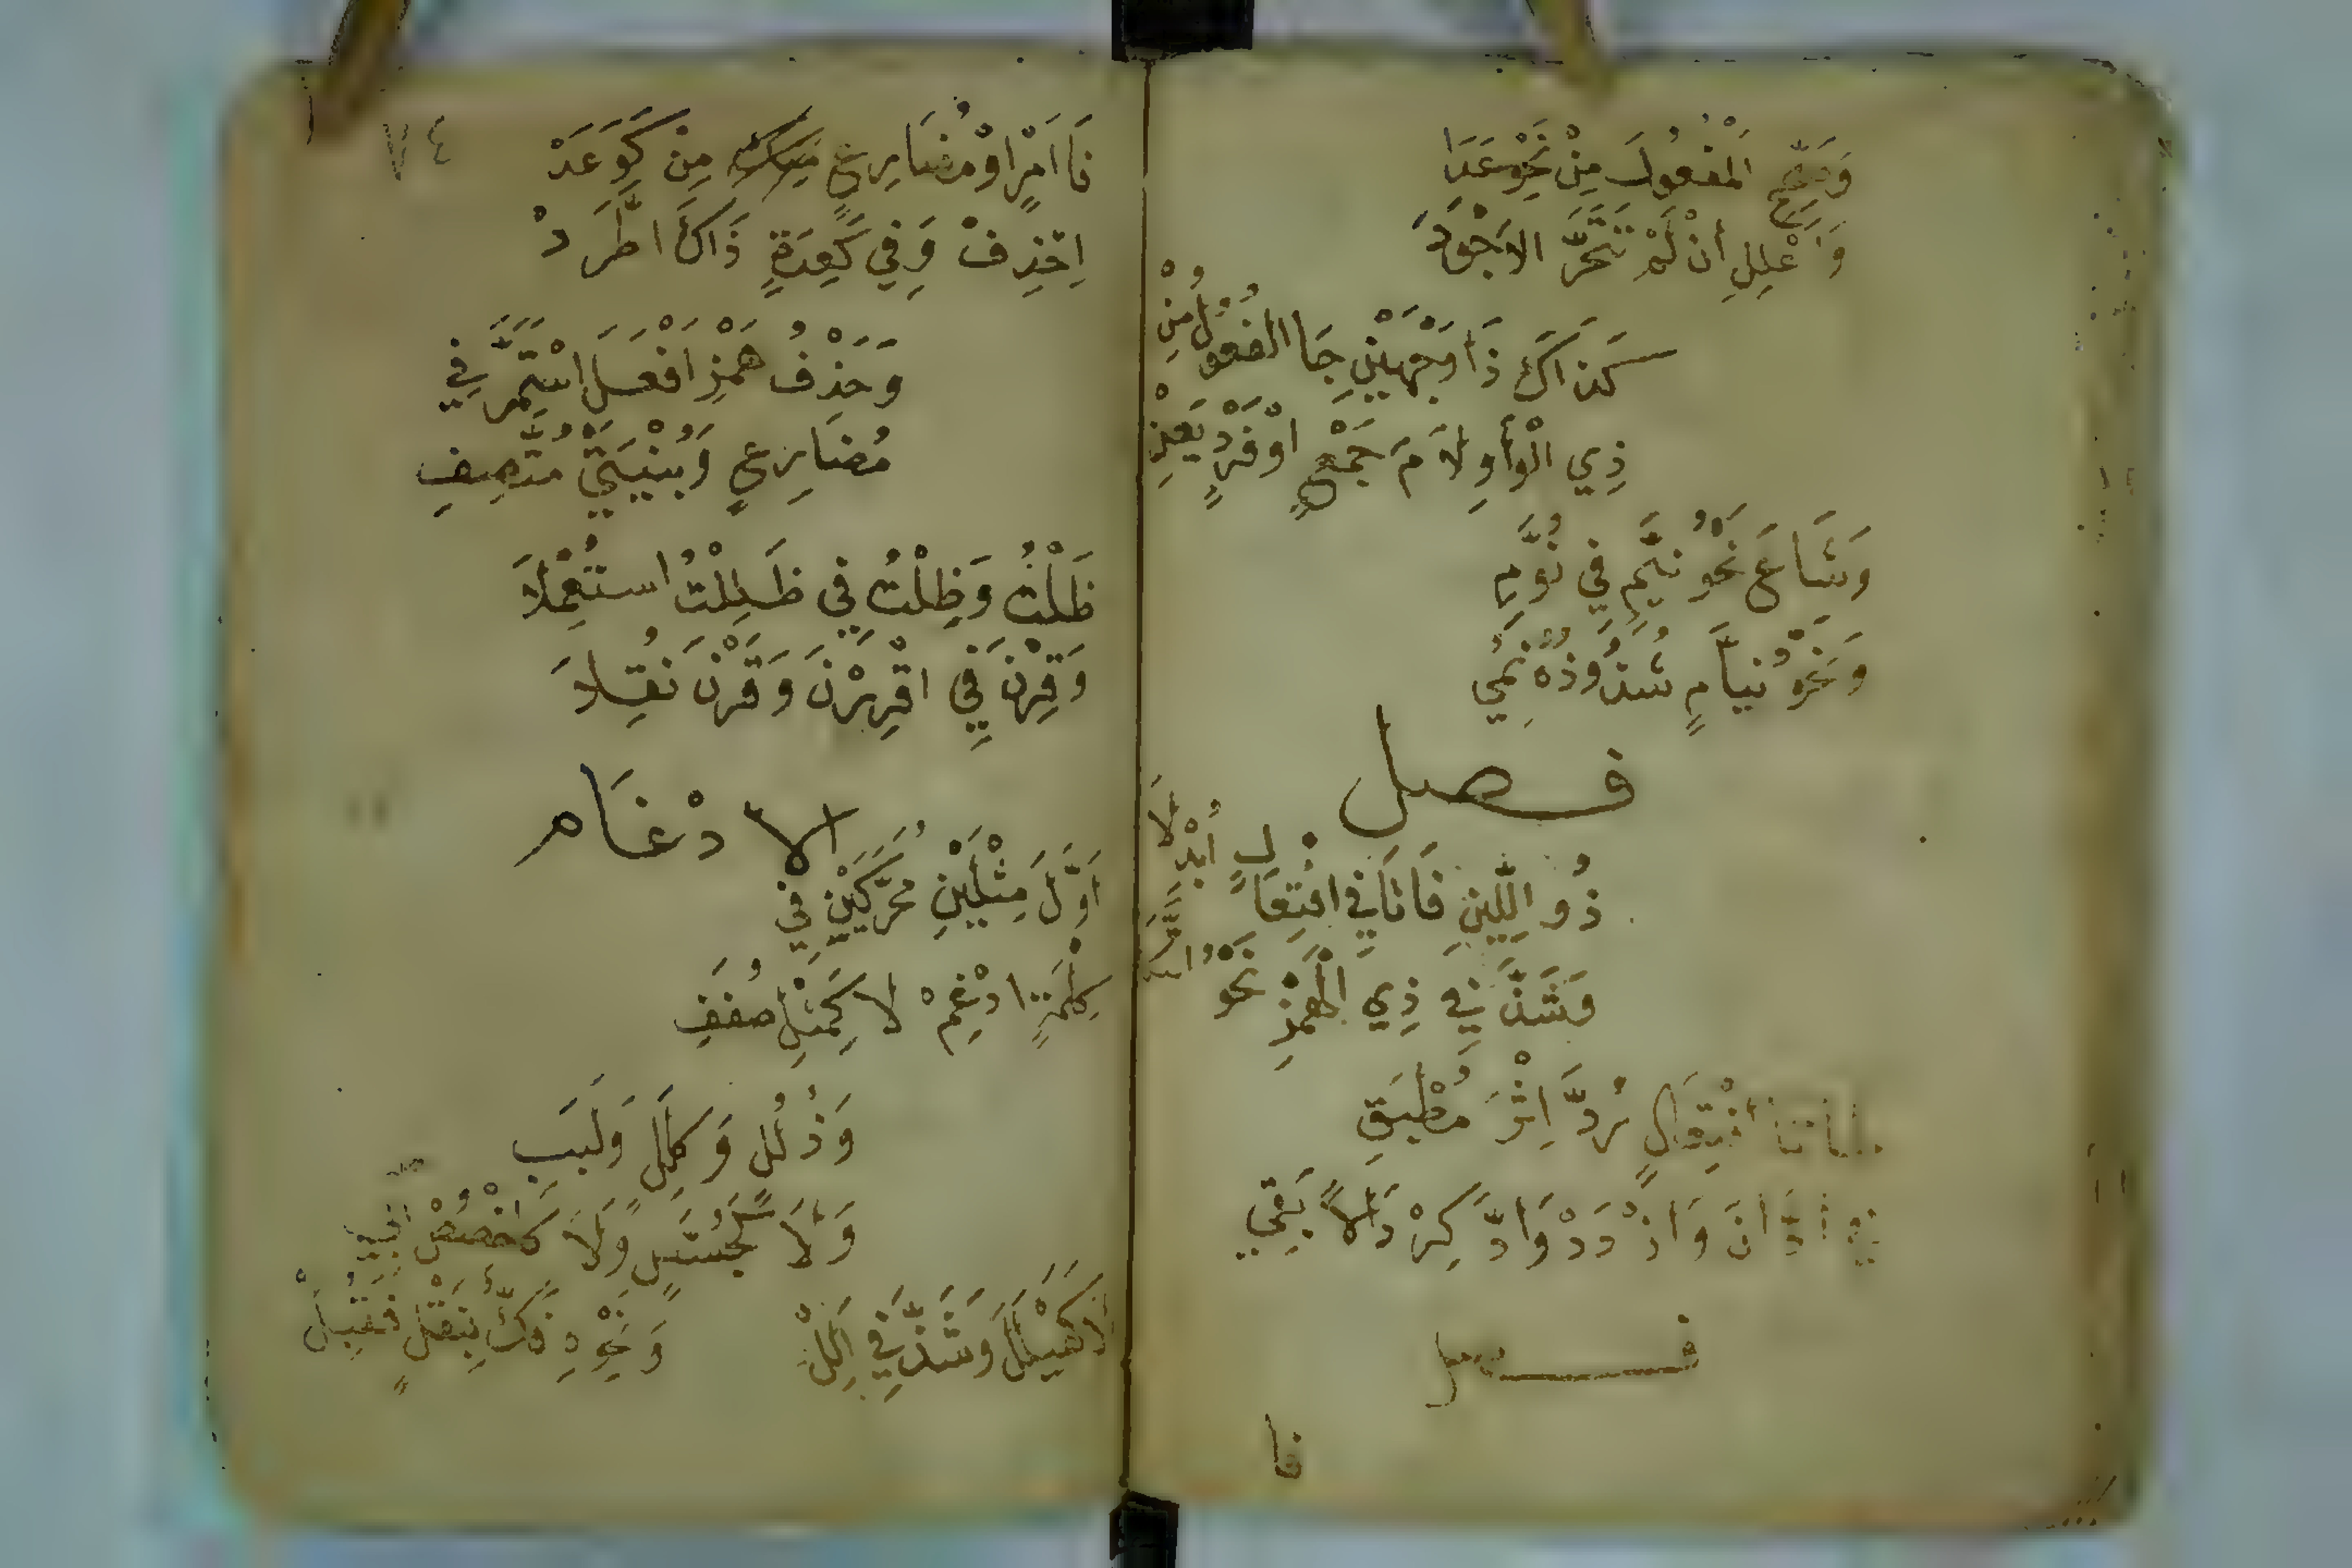 وَصَحِّحِ الْمَفْعُولَ مِنْ نَحْوِ عَدَا
وَأَعْلِلِ أنْ لَمْ تَتَحَرَّ الاَجْوَدَا
كَذَاكَ ذَا وَجْهَيْنِ جَا الفُعُولُ مِنْ
ذِي الْوَاوِ لاَمَ جَمْعٍ اوْ فَرْدٍ يَعِنْ
وَشَاعَ نَحْوُ نُيَّمٍ فِي نُوَّمِ
وَنَحْوُ نُيَّامٍ شُذُوذُهُ نُمِي
فصل
ذُو اللِّينِ فَاتَا فِي افْتِعَالٍ أُبْدِلاَ
وَشَذَّ فِي ذِي الْهَمْزِ نَحْوُ
طَاتَا افْتِعَالٍ رُدَّ إِثْرَ مُطْبَقِ
فِي ادَّانَ وَازْدَدْ وَادَّكِرْ دَالاً بَقِي
فصل
فا
٧٤
فَا امْرٍ اوْ مُضَارِعٍ مِنْ كَوَعَدْ
اِحْذِفْ وَفِي كَعِدَةٍ ذَاكَ اطَّرَدْ
وَحَذْفُ هَمْزِ افْعَلَ اسْتَمَرَّ فِي
مُضَارِعٍ وَبُنْيَتَيْ مُتَّصِفِ
ظَلْتُ وَظِلْتُ فِي ظَلِلْتُ اسْتُعْمِلاَ
وَقِرْنَ فِي اقْرِرْنَ وَقَرْنَ نُقِلاَ
الادْغَام
اَوَّلَ مِثْلَيْنِ مُحَرَّكَيْنِ فِي
كِلْمَةٍ ادْغِمْ لا كَمِثْلِ صُفَفِ
وَذُلُلٍ وَكِلَلٍ وَلَبَبِ
وَلاَ كَجُسَّسٍ وَلاَ كَاخْصُصَ أَبِي
وَلاَ كَهَيْلَلَ وَشَذَّ فِي أَلِلْ وَنَحْوِهِ فَكٌّ بِنَقْلٍ فَقُبِلْ